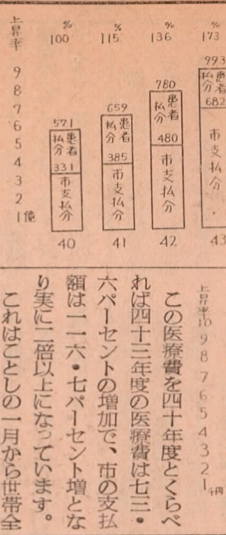 上昇率
%
100
%
115
%
136
%
173
9
8
7
6
5
4
3
2
1億
571
患者払分
331
市支払分
40
659
患者払分
385
市支払分
41
780
患者払分
480
市支払分
42
993
患者払分
682
市支払分
43
上昇率
10
9
8
7
6
5
4
3
2
1千円
この医療費を四十年度とくらべ
れば四十三年度の医療費は七三・
六パーセントの増加で、市の支払
額は一一六・七パーセント増とな
り実に二倍以上になっています。
これはことしの一月から世帯全